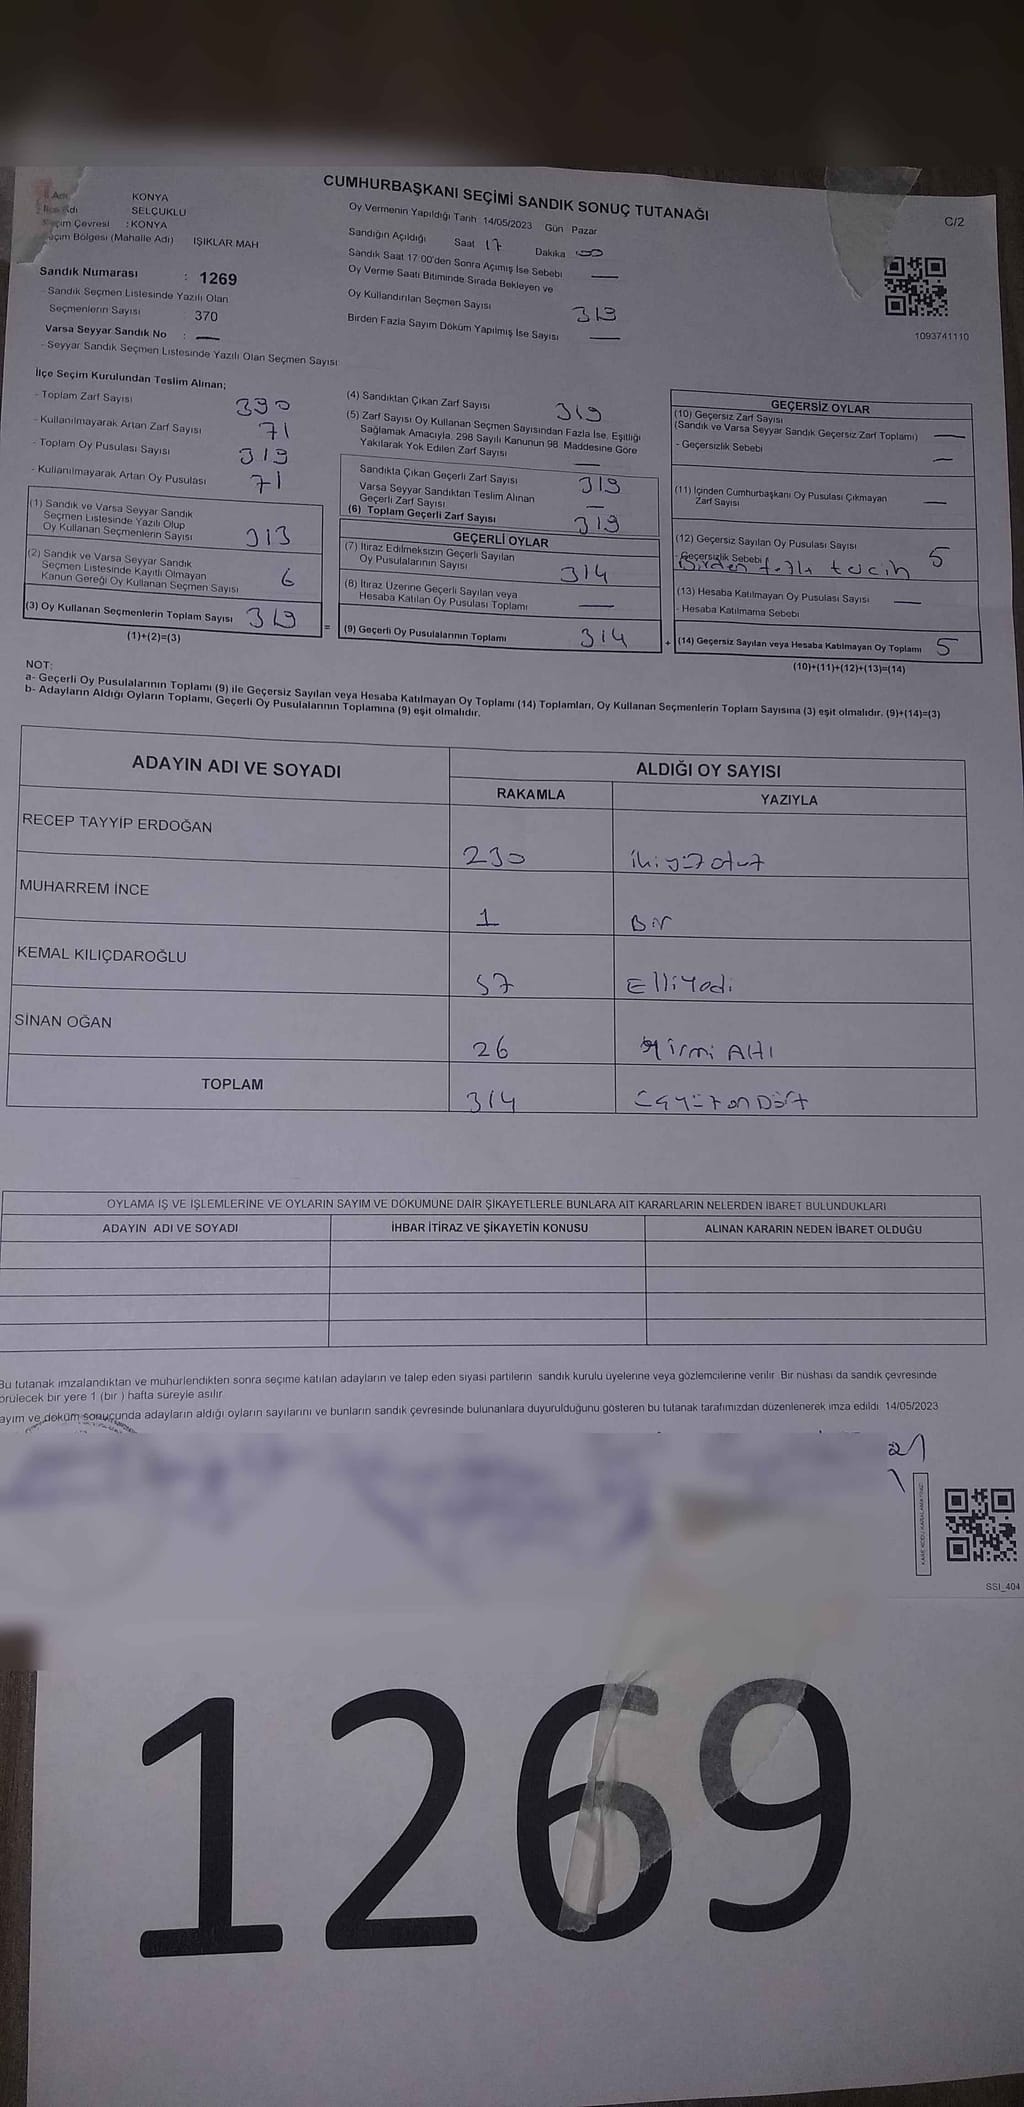 CUMHURBAŞKANI SEÇİMİ SANDIK SONUÇ TUTANAĞI
C/2
İl Adı KONYA
İlçe Adı SELÇUKLU
Seçim Çevresi : KONYA
Seçim Bölgesi (Mahalle Adı) IŞIKLAR MAH
Sandık Numarası : 1269
- Sandık Seçmen Listesinde Yazılı Olan
Seçmenlerin Sayısı 370
Varsa Seyyar Sandık No : —
- Seyyar Sandık Seçmen Listesinde Yazılı Olan Seçmen Sayısı
Oy Vermenin Yapıldığı Tarih 14/05/2023 Gün Pazar
Sandığın Açıldığı Saat 17 Dakika 00
Sandık Saat 17:00'den Sonra Açılmış İse Sebebi —
Oy Verme Saati Bitiminde Sırada Bekleyen ve
Oy Kullandırılan Seçmen Sayısı 319
Birden Fazla Sayım Döküm Yapılmış İse Sayısı —
1093741110
İlçe Seçim Kurulundan Teslim Alınan;
- Toplam Zarf Sayısı 390
- Kullanılmayarak Artan Zarf Sayısı 71
- Toplam Oy Pusulası Sayısı 319
- Kullanılmayarak Artan Oy Pusulası 71
(1) Sandık ve Varsa Seyyar Sandık
Seçmen Listesinde Yazılı Olup
Oy Kullanan Seçmenlerin Sayısı 313
(2) Sandık ve Varsa Seyyar Sandık
Seçmen Listesinde Kayıtlı Olmayan
Kanun Gereği Oy Kullanan Seçmen Sayısı 6
(3) Oy Kullanan Seçmenlerin Toplam Sayısı 319
(1)+(2)=(3)
(4) Sandıktan Çıkan Zarf Sayısı 319
(5) Zarf Sayısı Oy Kullanan Seçmen Sayısından Fazla İse, Eşitliği
Sağlamak Amacıyla, 298 Sayılı Kanunun 98. Maddesine Göre
Yakılarak Yok Edilen Zarf Sayısı —
Sandıkta Çıkan Geçerli Zarf Sayısı 319
Varsa Seyyar Sandıktan Teslim Alınan
Geçerli Zarf Sayısı —
(6) Toplam Geçerli Zarf Sayısı 319
GEÇERLİ OYLAR
(7) İtiraz Edilmeksizin Geçerli Sayılan
Oy Pusulalarının Sayısı 314
(8) İtiraz Üzerine Geçerli Sayılan veya
Hesaba Katılan Oy Pusulası Toplamı —
= (9) Geçerli Oy Pusulalarının Toplamı 314
GEÇERSİZ OYLAR
(10) Geçersiz Zarf Sayısı
(Sandık ve Varsa Seyyar Sandık Geçersiz Zarf Toplamı) —
- Geçersizlik Sebebi —
(11) İçinden Cumhurbaşkanı Oy Pusulası Çıkmayan
Zarf Sayısı —
(12) Geçersiz Sayılan Oy Pusulası Sayısı 5
- Geçersizlik Sebebi
Birden fazla tercih
(13) Hesaba Katılmayan Oy Pusulası Sayısı —
- Hesaba Katılmama Sebebi
+ (14) Geçersiz Sayılan veya Hesaba Katılmayan Oy Toplamı 5
(10)+(11)+(12)+(13)=(14)
NOT:
a- Geçerli Oy Pusulalarının Toplamı (9) ile Geçersiz Sayılan veya Hesaba Katılmayan Oy Toplamı (14) Toplamları, Oy Kullanan Seçmenlerin Toplam Sayısına (3) eşit olmalıdır. (9)+(14)=(3)
b- Adayların Aldığı Oyların Toplamı, Geçerli Oy Pusulalarının Toplamına (9) eşit olmalıdır.
ADAYIN ADI VE SOYADI ALDIĞI OY SAYISI
RAKAMLA YAZIYLA
RECEP TAYYİP ERDOĞAN 230 ikiyüz otuz
MUHARREM İNCE 1 Bir
KEMAL KILIÇDAROĞLU 57 Elliyedi
SİNAN OĞAN 26 Yirmi Altı
TOPLAM 314 üçyüz on Dört
OYLAMA İŞ VE İŞLEMLERİNE VE OYLARIN SAYIM VE DÖKÜMÜNE DAİR ŞİKAYETLERLE BUNLARA AİT KARARLARIN NELERDEN İBARET BULUNDUKLARI
ADAYIN ADI VE SOYADI İHBAR İTİRAZ VE ŞİKAYETİN KONUSU ALINAN KARARIN NEDEN İBARET OLDUĞU
Bu tutanak imzalandıktan ve mühürlendikten sonra seçime katılan adayların ve talep eden siyasi partilerin sandık kurulu üyelerine veya gözlemcilerine verilir. Bir nüshası da sandık çevresinde
örülecek bir yere 1 (bir ) hafta süreyle asılır.
ayım ve döküm sonucunda adayların aldığı oyların sayılarını ve bunların sandık çevresinde bulunanlara duyurulduğunu gösteren bu tutanak tarafımızdan düzenlenerek imza edildi. 14/05/2023
SSI_404
1269